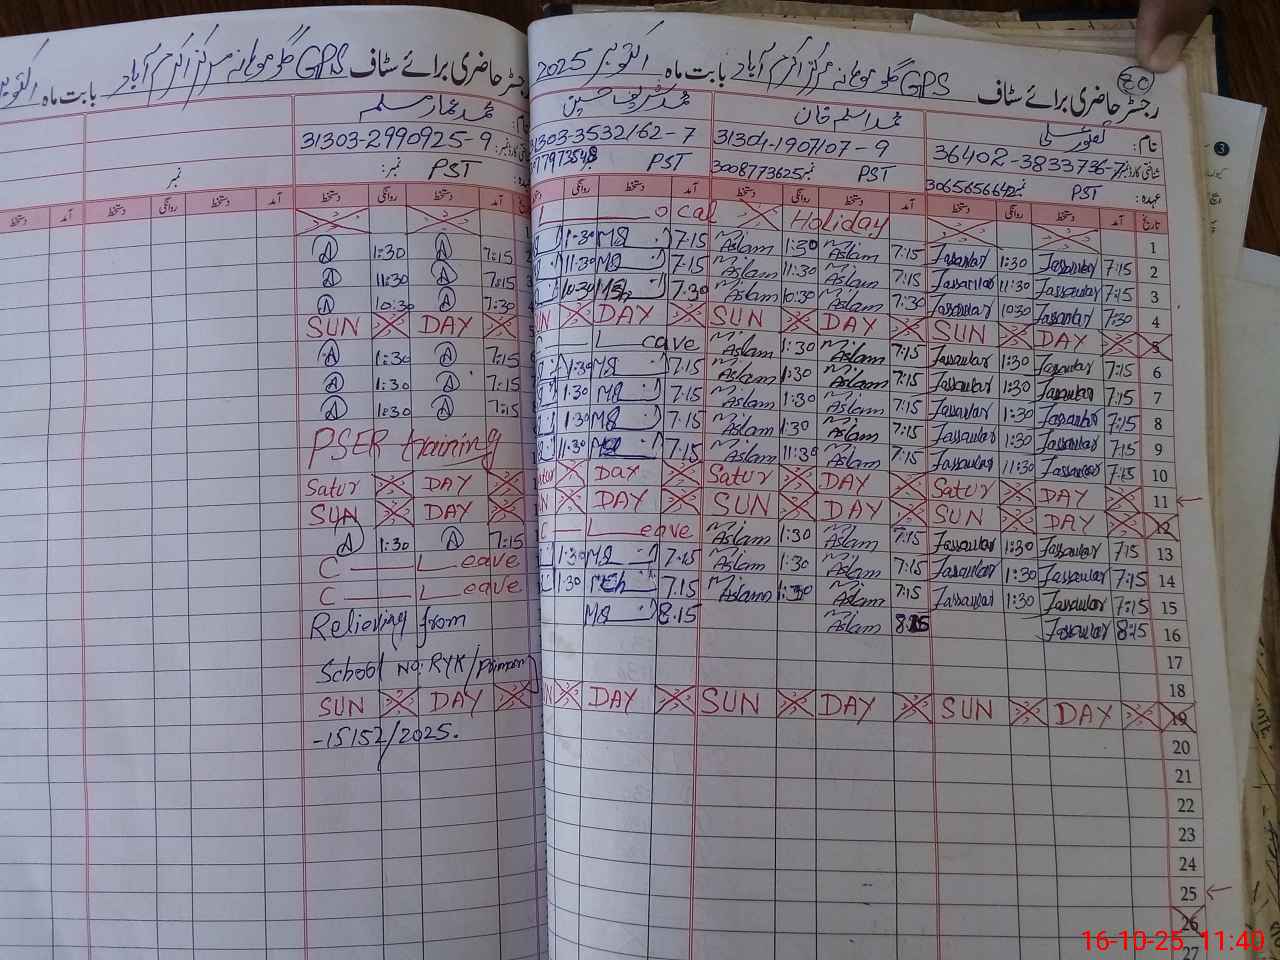 رجسٹر حاضری برائے سٹاف GPS بابت ماہ اکتوبر 2025
30
نام:
محمد اسلم خان
محمد شریف حسین
36402-3833736-7
31304-1907107-9
31303-3532162-7
3065656642 PST
3008773625 PST
PST
تاریخ آمد دستخط روانگی دستخط آمد دستخط روانگی دستخط آمد دستخط روانگی
1 Holiday L ocal
2 7:15 Jassawar 1:30 Jassawar 7:15 Aslam 1:30 Aslam 7:15 MS 1:30
3 7:15 Jassawar 11:30 Jassawar 7:15 Aslam 11:30 Aslam 7:15 MS 11:30
4 7:30 Jassawar 10:30 Jassawar 7:30 Aslam 10:30 Aslam 7:30 10:30
5 SUN DAY SUN DAY DAY
6 7:15 Jassawar 1:30 Jassawar 7:15 Aslam 1:30 Aslam C L eave
7 7:15 Jassawar 1:30 Jassawar 7:15 Aslam 1:30 Aslam 7:15 MS 1:30
8 7:15 Jassawar 1:30 Jassawar 7:15 Aslam 1:30 Aslam 7:15 MS 1:30
9 7:15 Jassawar 1:30 Jassawar 7:15 Aslam 1:30 Aslam 7:15 MS 1:30
10 7:15 Jassawar 11:30 Jassawar 7:15 Aslam 11:30 Aslam 7:15 11:30
11 Satur DAY Satur DAY DAY
12 SUN DAY SUN DAY DAY
13 7:15 Jassawar 1:30 Jassawar 7:15 Aslam 1:30 Aslam C L eave
14 7:15 Jassawar 1:30 Jassawar 7:15 Aslam 1:30 Aslam 7:15 MS 1:30
15 7:15 Jassawar 1:30 Jassawar 7:15 Aslam 1:30 Aslam 7:15 1:30
16 8:15 Jassawar 8:15 Aslam 8:15 MS
17
18
19 SUN DAY SUN DAY DAY
20
21
22
23
24
25
26
27
رجسٹر حاضری برائے سٹاف GPS بابت ماہ اکتوبر
محمد عمار مسلم
31303-2990925-9
نمبر: PST
نمبر
آمد دستخط روانگی دستخط آمد دستخط روانگی دستخط آمد دستخط
7:15 A 1:30 A
7:15 A 11:30 A
7:30 A 10:30 A
SUN DAY
7:15 A 1:30 A
7:15 A 1:30 A
7:15 A 1:30 A
PSER training
Satur DAY
SUN DAY
7:15 A 1:30 A
C L eave
C L eave
Relieving from
School No: RYK/
SUN DAY
-15152/2025.
16-10-25, 11:40